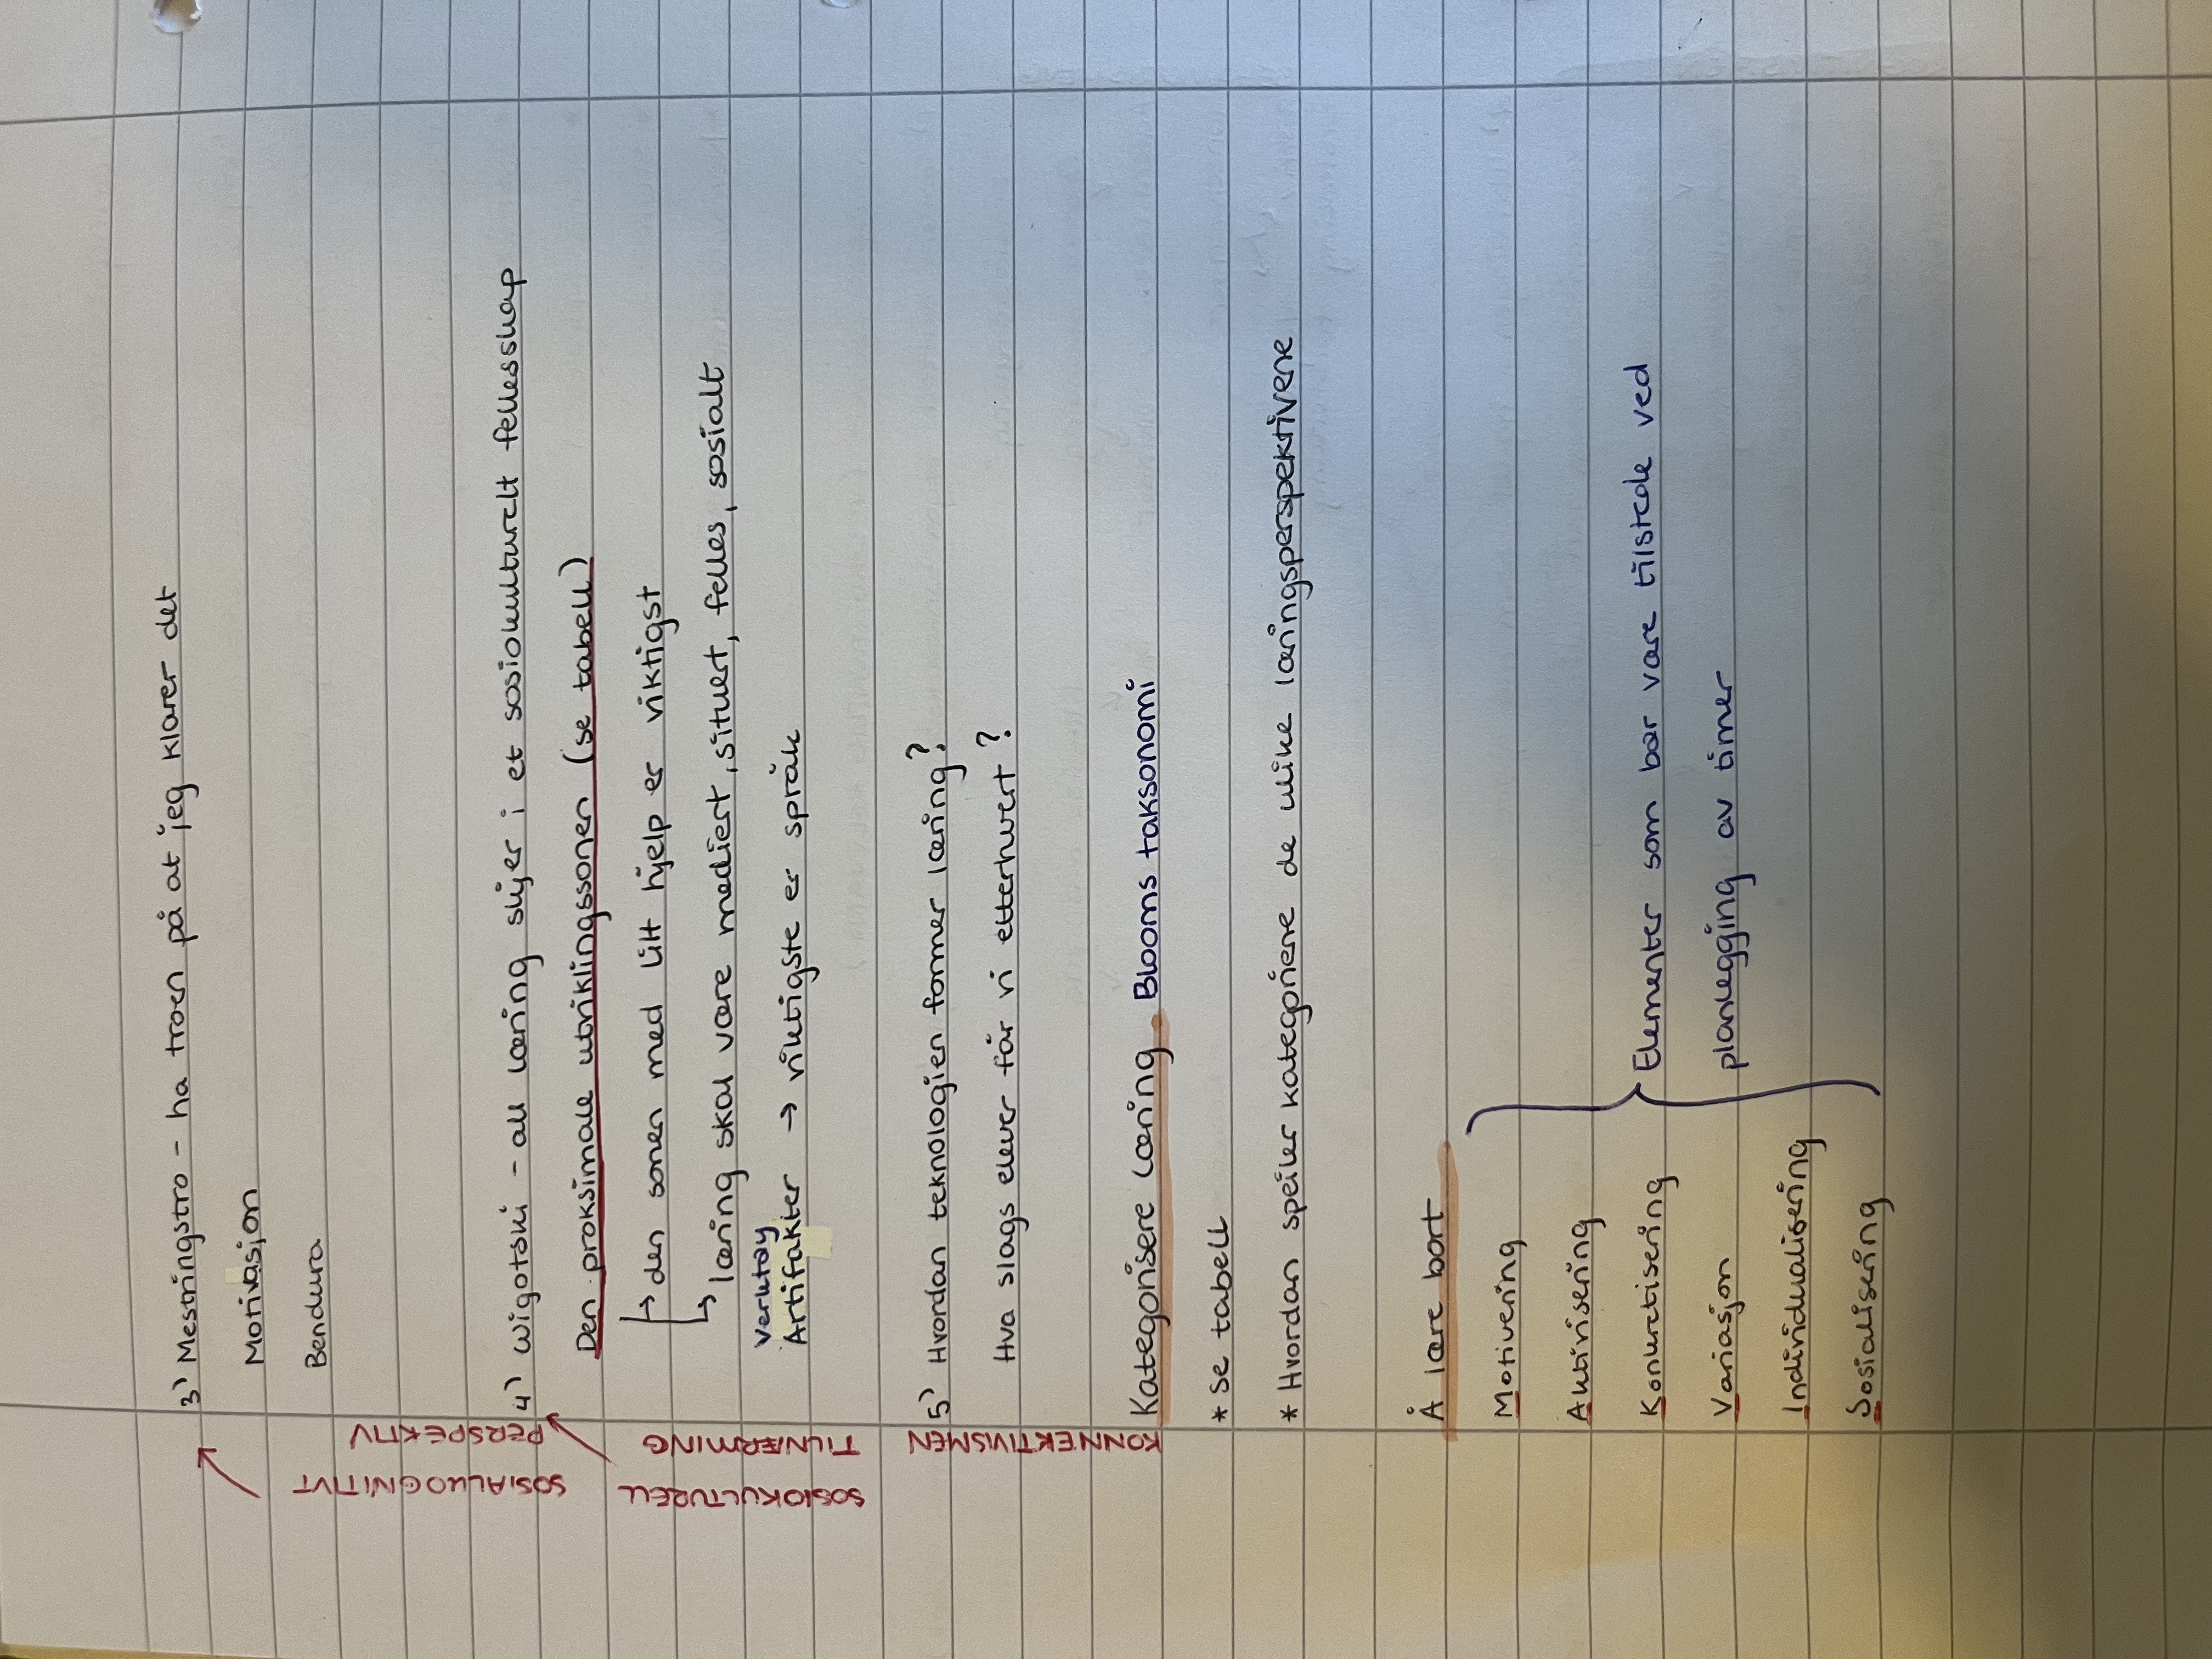 SOSIALKOGNITIVT
PERSPEKTIV
3) Mestringstro - ha troen på at jeg klarer det
Motivasjon
Bendura
SOSIOKULTURELL
TILNÆRMING
4) Wigotski - all læring skjer i et sosiokulturelt fellesskap
Den proksimale utviklingssonen (se tabell)
↳ den sonen med litt hjelp er viktigst
↳ læring skal være mediert, situert, felles, sosialt
Verktøy
Artifakter → viktigste er språk
KONNEKTIVISMEN
5) Hvordan teknologien former læring?
Hva slags elever får vi etterhvert?
Kategorisere læring Blooms taksonomi
* Se tabell
* Hvordan speiler kategoriene de ulike læringsperspektivene
Å lære bort
Motivering
Aktivisering
Konkretisering
Variasjon
Individualisering
Sosialisering
Elementer som bør være tilstede ved
planlegging av timer